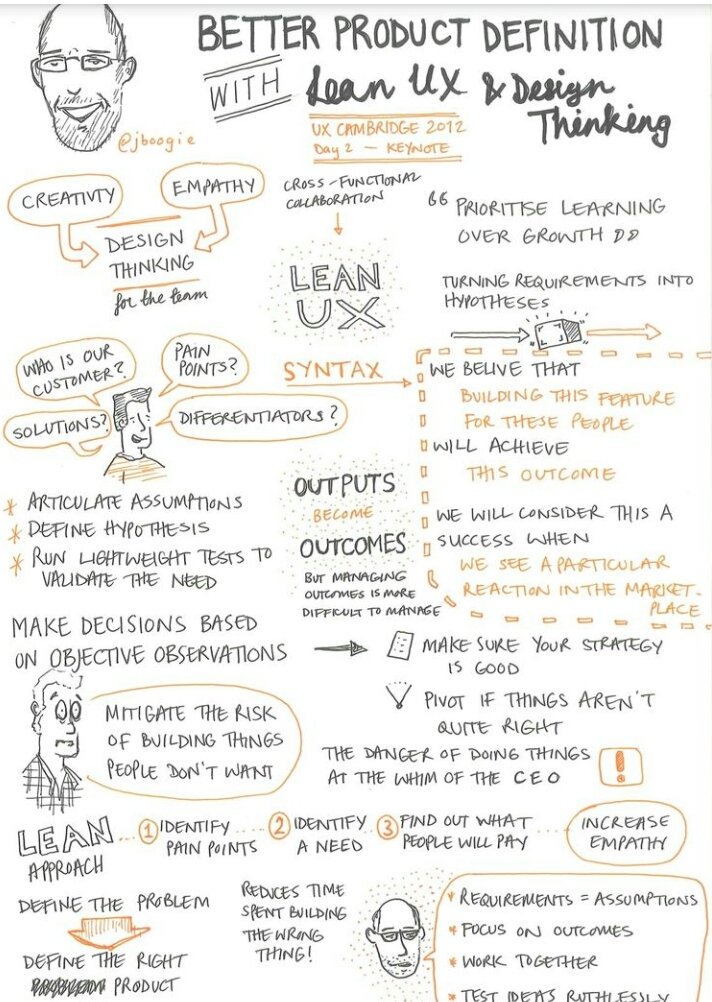 BETTER PRODUCT DEFINITION
WITH Lean UX & Design
Thinking
@jboogie
UX CAMBRIDGE 2012
Day 2 — KEYNOTE
CREATIVTY
EMPATHY
DESIGN
THINKING
for the team
CROSS-FUNCTIONAL
COLLABORATION
LEAN
UX
66 PRIORITISE LEARNING
OVER GROWTH DD
TURNING REQUIREMENTS INTO
HYPOTHESES
WHO IS OUR
CUSTOMER?
PAIN
POINTS?
SOLUTIONS?
DIFFERENTIATORS?
SYNTAX
WE BELIVE THAT
BUILDING THIS FEATURE
FOR THESE PEOPLE
WILL ACHIEVE
THIS OUTCOME
WE WILL CONSIDER THIS A
SUCCESS WHEN
WE SEE A PARTICULAR
REACTION IN THE MARKET-
PLACE
* ARTICULATE ASSUMPTIONS
* DEFINE HYPOTHESIS
* RUN LIGHTWEIGHT TESTS TO
VALIDATE THE NEED
OUTPUTS
BECOME
OUTCOMES
BUT MANAGING
OUTCOMES IS MORE
DIFFICULT TO MANAGE
MAKE DECISIONS BASED
ON OBJECTIVE OBSERVATIONS
MAKE SURE YOUR STRATEGY
IS GOOD
PIVOT IF THINGS AREN'T
QUITE RIGHT
MITIGATE THE RISK
OF BUILDING THINGS
PEOPLE DON'T WANT
THE DANGER OF DOING THINGS
AT THE WHIM OF THE CEO
!
LEAN
APPROACH
1 IDENTIFY
PAIN POINTS
2 IDENTIFY
A NEED
3 FIND OUT WHAT
PEOPLE WILL PAY
INCREASE
EMPATHY
DEFINE THE PROBLEM
DEFINE THE RIGHT
PRODUCT
REDUCES TIME
SPENT BUILDING
THE WRONG
THING!
* REQUIREMENTS = ASSUMPTIONS
* FOCUS ON OUTCOMES
* WORK TOGETHER
* TEST IDEAS RUTHLESSLY